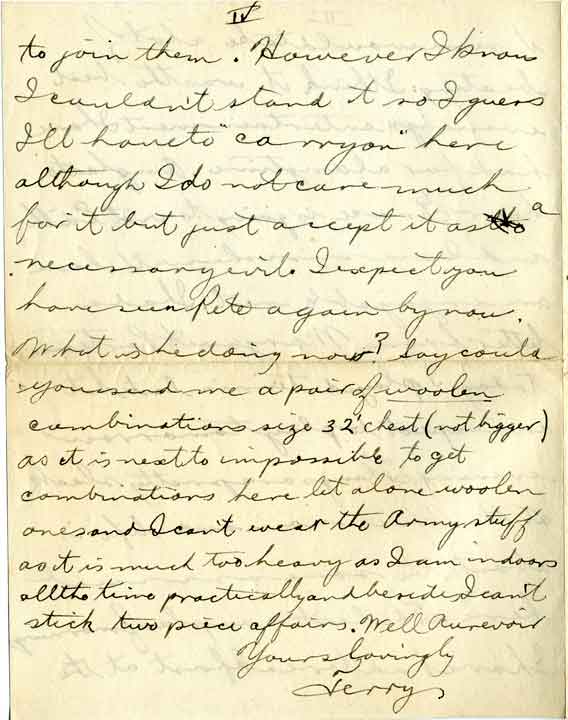 IV
to join them. However I know
I couldn't stand it so I guess
I'll have to "carry on" here
although I do not care much
for it but just accept it as a
necessary evil. I expect you
have seen Pete again by now.
What is he doing now? Say could
you send me a pair of woolen
combinations size 32" chest (not bigger)
as it is next to impossible to get
combinations here let alone woolen
ones and I can't wear the Army stuff
as it is much too heavy as I am indoors
all the time practically and besides I can't
stick two piece affairs. Well Au revoir
Yours lovingly
Terry